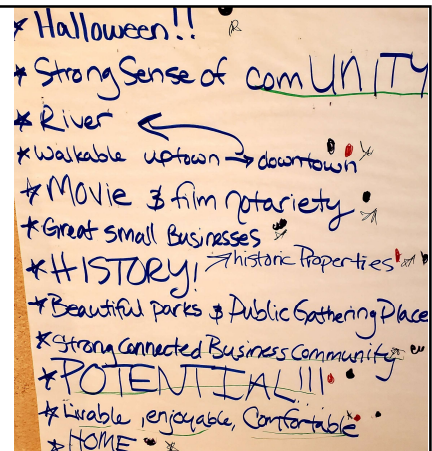 * Halloween!!
* Strong Sense of comUNITY
* River
* Walkable uptown → downtown
* Movie & film notariety
* Great Small Businesses
* HISTORY! → historic Properties
* Beautiful parks & Public Gathering Place
* Strong Connected Business Community
* POTENTIAL!!!
* Livable, enjoyable, Comfortable
* HOME